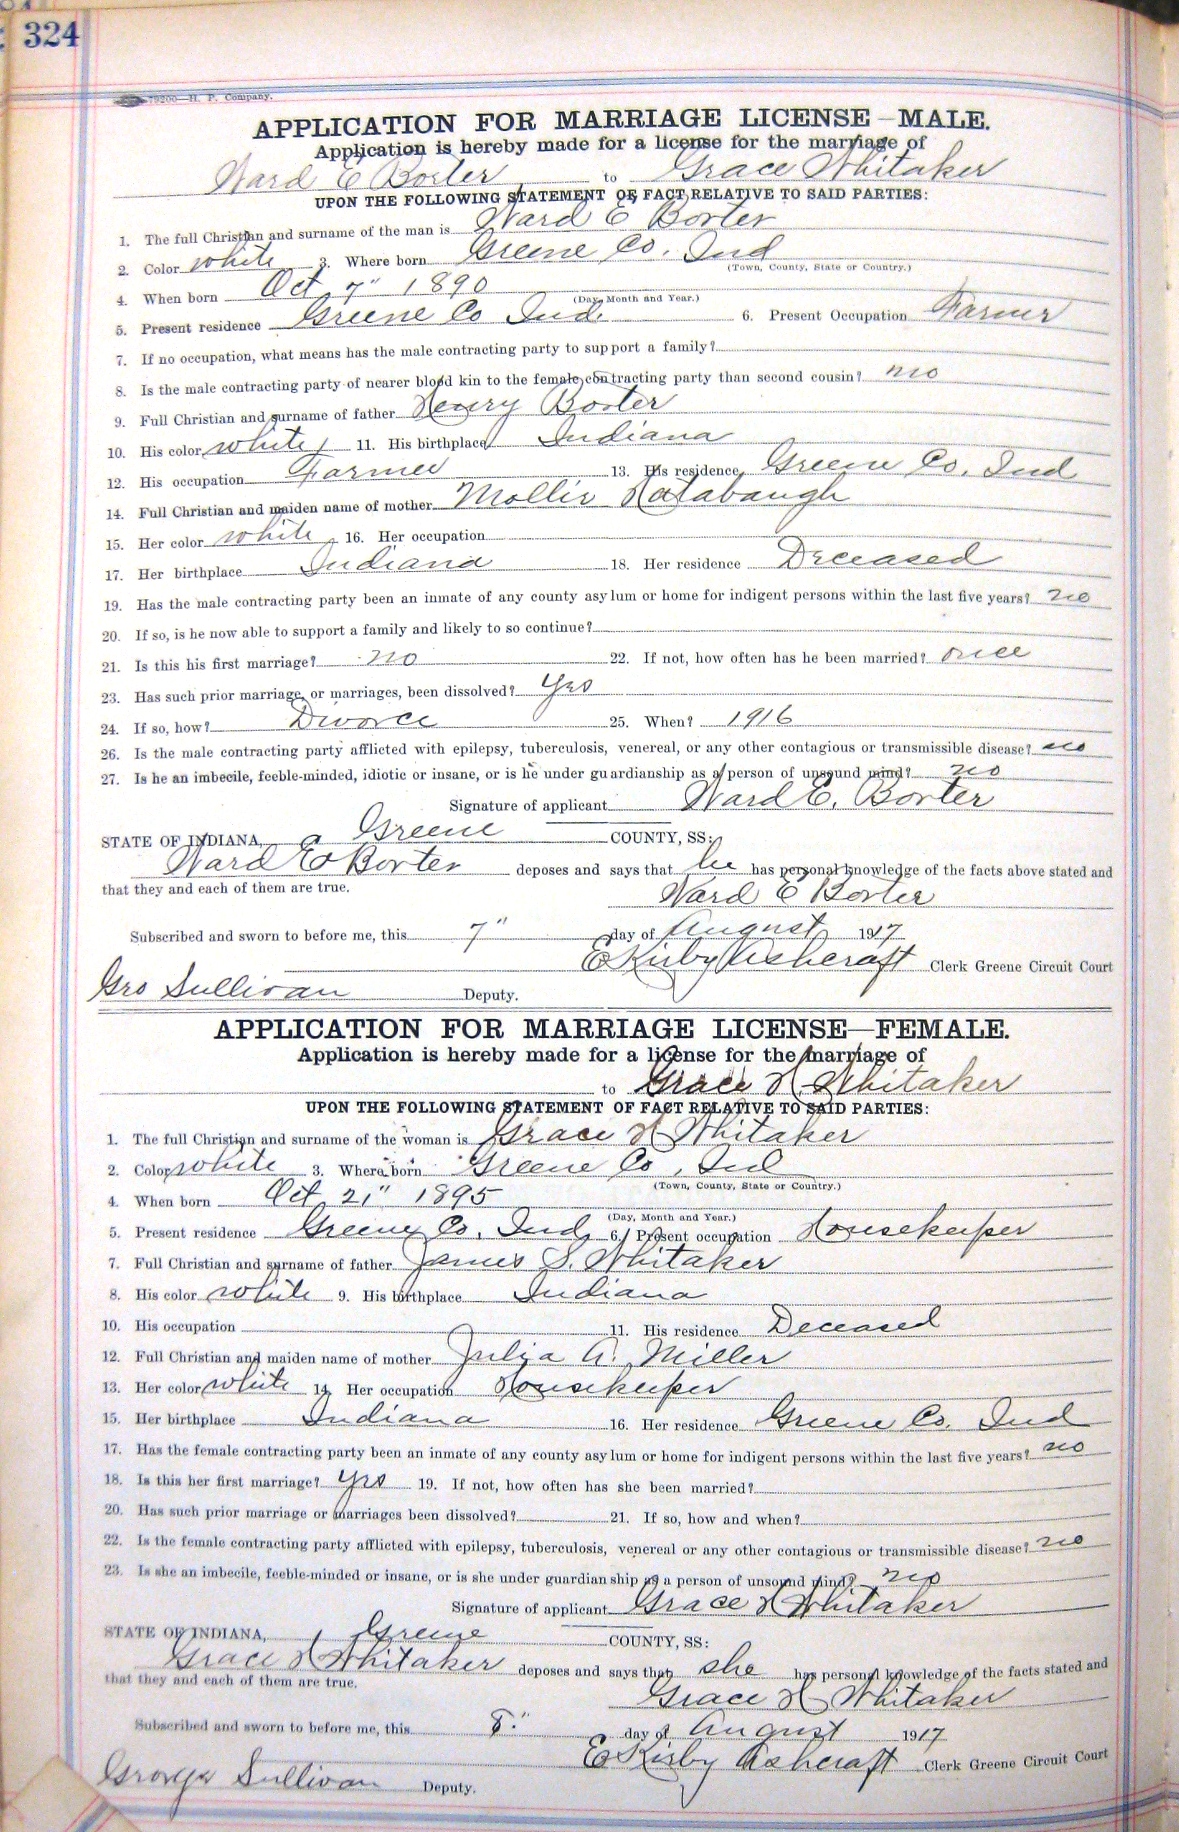 324
79200—H. P. Company.
APPLICATION FOR MARRIAGE LICENSE—MALE.
Application is hereby made for a license for the marriage of
Ward E Borter to Grace Whitaker
UPON THE FOLLOWING STATEMENT OF FACT RELATIVE TO SAID PARTIES:
1. The full Christian and surname of the man is Ward E Borter
2. Color white 3. Where born Greene Co. Ind
(Town, County, State or Country.)
4. When born Oct 7" 1890
(Day, Month and Year.)
5. Present residence Greene Co Ind. 6. Present Occupation Farmer
7. If no occupation, what means has the male contracting party to support a family?
8. Is the male contracting party of nearer blood kin to the female contracting party than second cousin? no
9. Full Christian and surname of father Henry Borter
10. His color white 11. His birthplace Indiana
12. His occupation Farmer 13. His residence Greene Co. Ind
14. Full Christian and maiden name of mother Mollie Hatabaugh
15. Her color white 16. Her occupation
17. Her birthplace Indiana 18. Her residence Deceased
19. Has the male contracting party been an inmate of any county asylum or home for indigent persons within the last five years? no
20. If so, is he now able to support a family and likely to so continue?
21. Is this his first marriage? no 22. If not, how often has he been married? once
23. Has such prior marriage, or marriages, been dissolved? yes
24. If so, how? Divorce 25. When? 1916
26. Is the male contracting party afflicted with epilepsy, tuberculosis, venereal, or any other contagious or transmissible disease? no
27. Is he an imbecile, feeble-minded, idiotic or insane, or is he under guardianship as a person of unsound mind? no
Signature of applicant Ward E. Borter
STATE OF INDIANA, Greene COUNTY, SS:
Ward E Borter deposes and says that he has personal knowledge of the facts above stated and
that they and each of them are true.
Ward E Borter
Subscribed and sworn to before me, this 7" day of August 1917
E Kirby Ashcraft Clerk Greene Circuit Court
Geo Sullivan Deputy.
APPLICATION FOR MARRIAGE LICENSE—FEMALE.
Application is hereby made for a license for the marriage of
to Grace H Whitaker
UPON THE FOLLOWING STATEMENT OF FACT RELATIVE TO SAID PARTIES:
1. The full Christian and surname of the woman is Grace H Whitaker
2. Color white 3. Where born Greene Co, Ind
(Town, County, State or Country.)
4. When born Oct 21" 1895
(Day, Month and Year.)
5. Present residence Greene Co. Ind 6. Present occupation Housekeeper
7. Full Christian and surname of father James S. Whitaker
8. His color white 9. His birthplace Indiana
10. His occupation 11. His residence Deceased
12. Full Christian and maiden name of mother Julia A. Miller
13. Her color white 14. Her occupation Housekeeper
15. Her birthplace Indiana 16. Her residence Greene Co. Ind
17. Has the female contracting party been an inmate of any county asylum or home for indigent persons within the last five years? no
18. Is this her first marriage? yes 19. If not, how often has she been married?
20. Has such prior marriage or marriages been dissolved? 21. If so, how and when?
22. Is the female contracting party afflicted with epilepsy, tuberculosis, venereal or any other contagious or transmissible disease? no
23. Is she an imbecile, feeble-minded or insane, or is she under guardianship as a person of unsound mind? no
Signature of applicant Grace H Whitaker
STATE OF INDIANA, Greene COUNTY, SS:
Grace H Whitaker deposes and says that she has personal knowledge of the facts stated and
that they and each of them are true.
Grace H Whitaker
Subscribed and sworn to before me, this 8." day of August 1917
E Kirby Ashcraft Clerk Greene Circuit Court
George Sullivan Deputy.